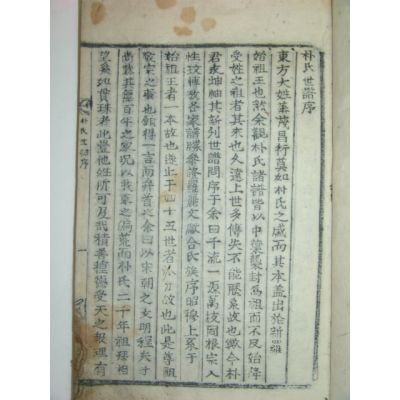 朴氏世譜序
東方大姓葉茂昌衍莫如朴氏之盛而其本盖出於新羅
始祖王也然余觀朴氏諸譜皆以中葉襲封爲祖而不及始得
受姓之祖者其來也久遠上世多傳失不能歷紊故也今朴
君 坤鉉甚新列世譜問序于余曰千流一源萬枝同根宗人
性玟 於各家譜牒 羅麗文獻合氏族序昭穆上系于
始祖王者一本故也遂止于四十五世者 故也此是尊祖
敬宗之事也願得一言而弁首之余曰以宋朝之文明程夫子
尚 其 百年之家况以我東之偏荒而朴氏二千年祖 相
望 如貫珠者此豈他姓所可及哉積善種德受天之報理有
朴氏世譜序
一